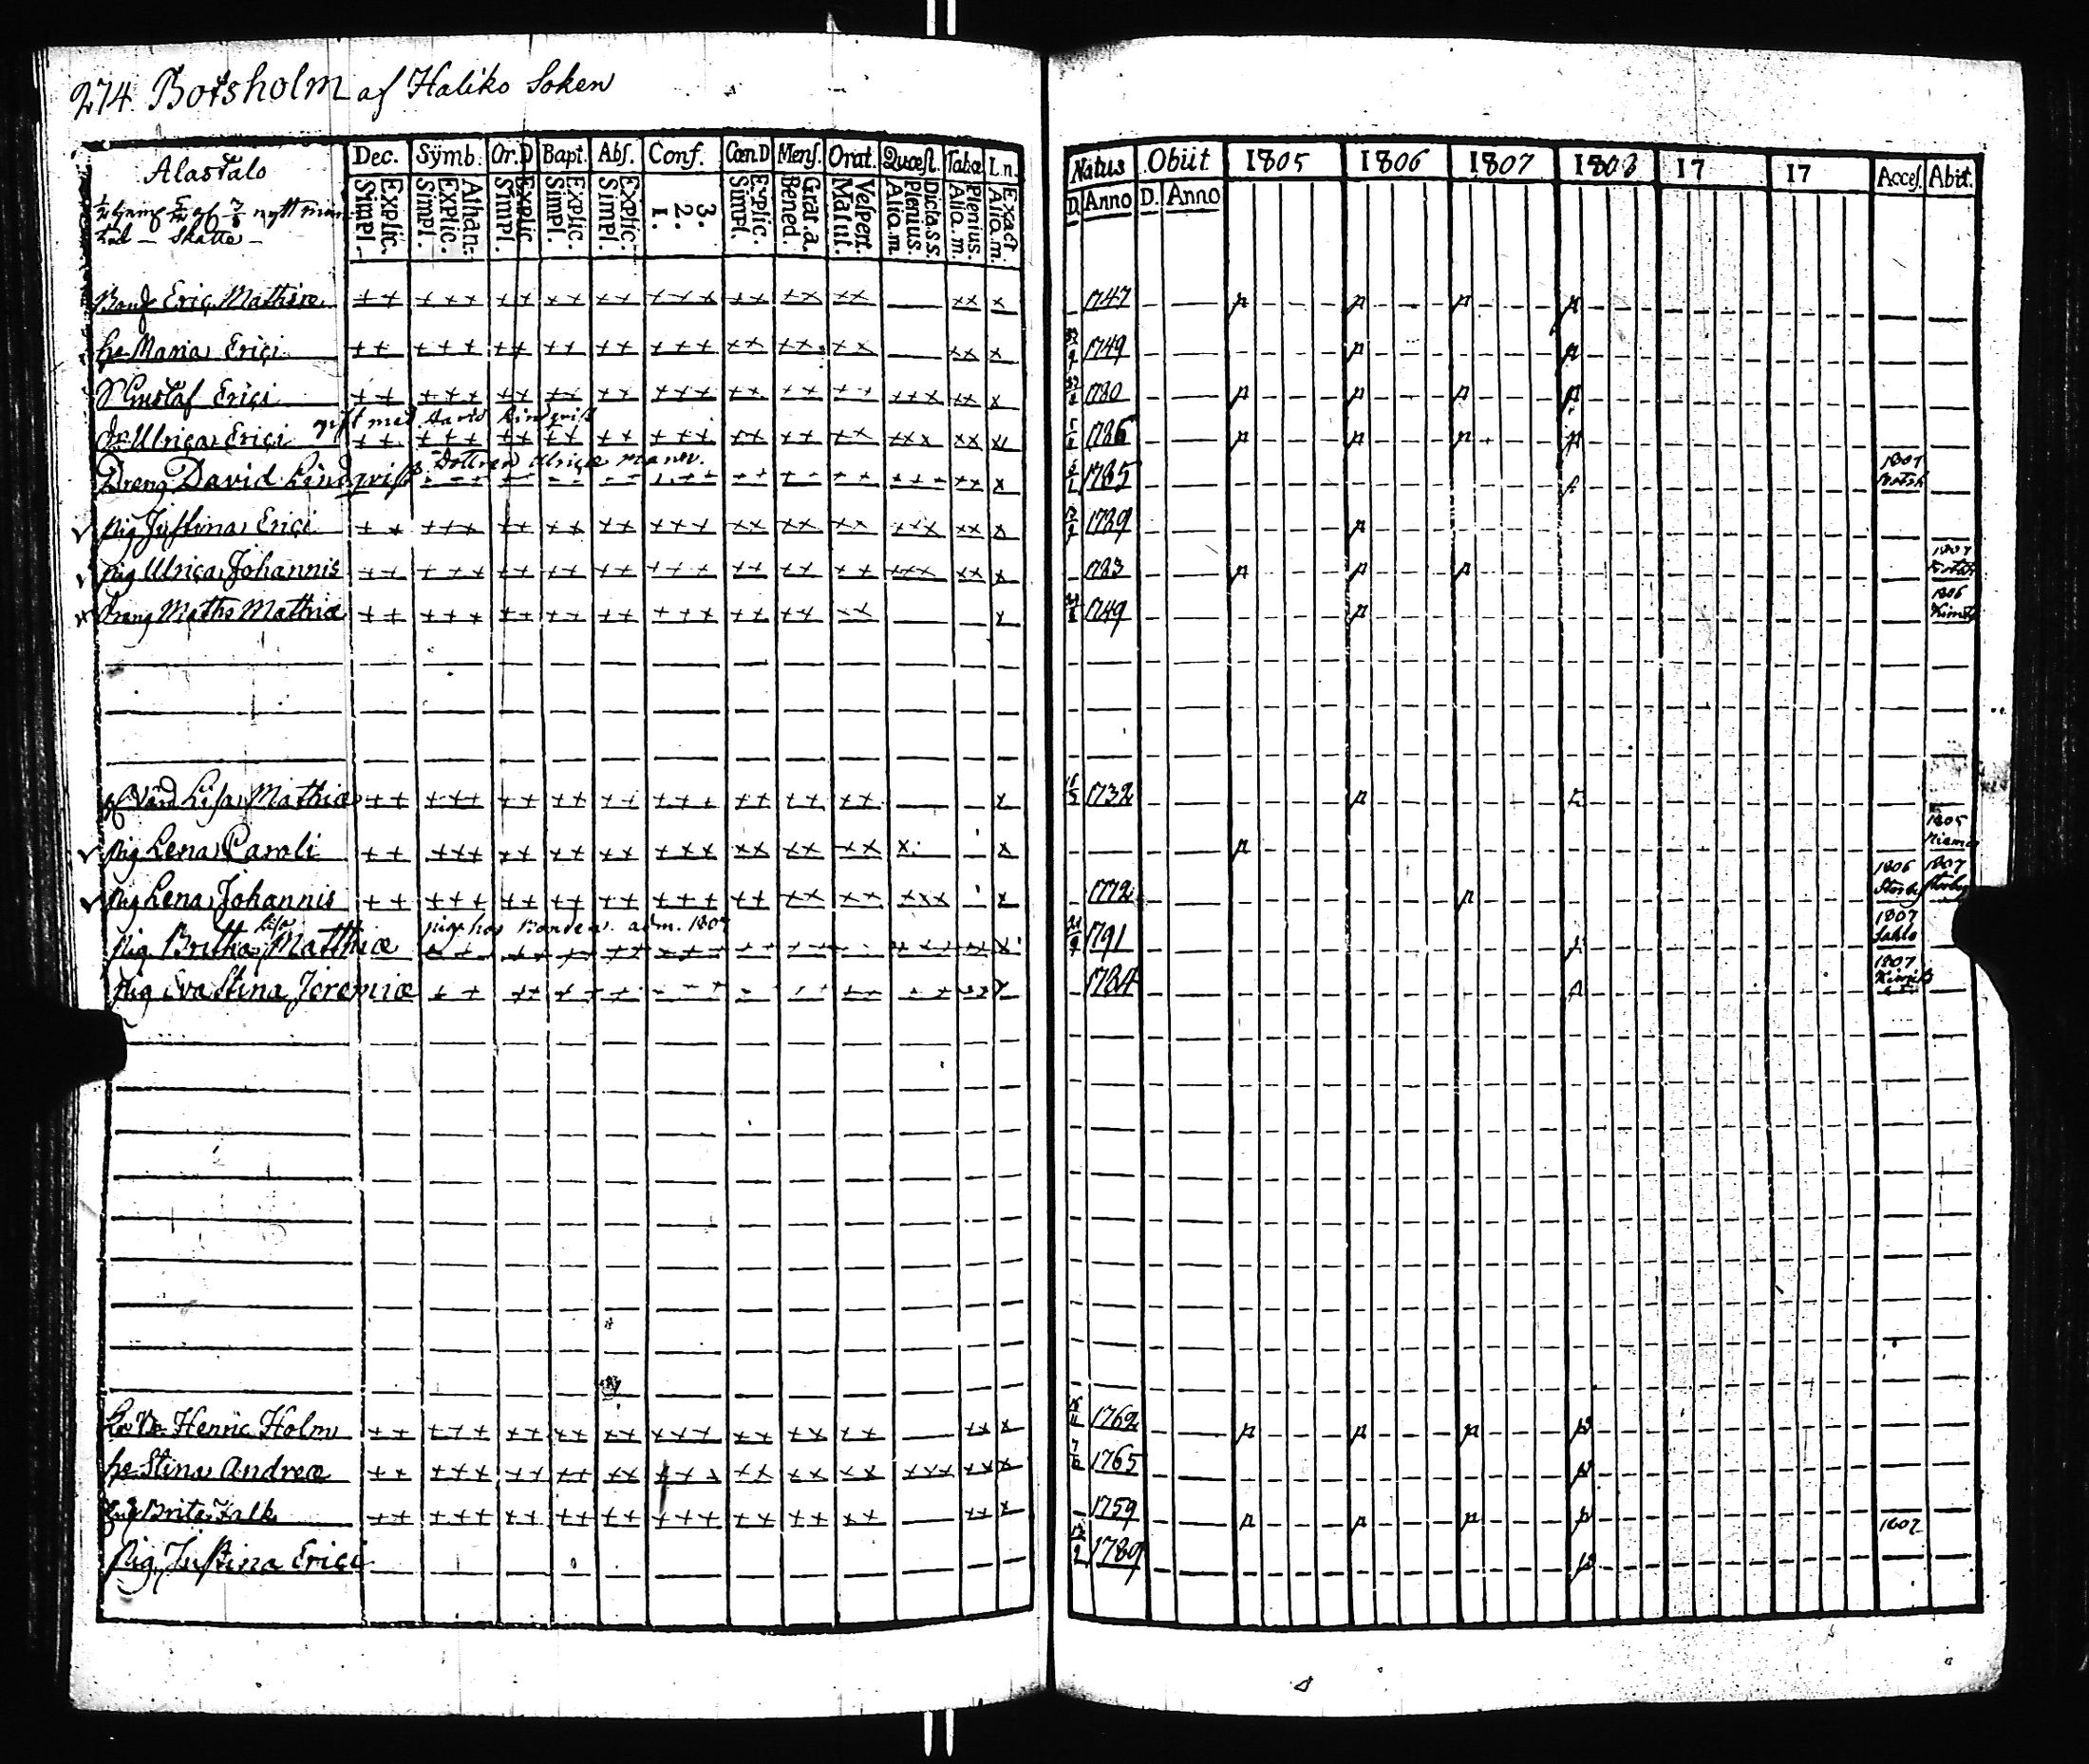 274. Botsholm af Haliko Soken
Alastalo
Skatte
Dec. Symb. Or.D Bapt. Abs. Conf. Cœn D Mens. Orat. Quæst. Tabæ I.n.
Simpl. Explic. Simpl. Explic. Athan. Simpl. Explic Simpl. Explic. Simpl. Explic. 1. 2. 3. Simpl. Explic. Bened. Grat.a. Matut. Vespert. Alia.m Plenius. Dicta.s.s. Alia.m. Plenius. Alia.m. Exact
Natus Obiit 1805 1806 1807 1808 17 17 Acces. Abit.
D. Anno D. Anno
Bond Eric Mathiæ 1747
hr Maria Erici 1749
S Gustaf Erici 1780
gift med David Lindqvist
dr Ulrica Erici 1786
Dottren Ulricæ man
Dreng David Lindqvist 1785 1807
pig Justina Erici 1789
pig Ulrica Johannis 1783 1807
dreng Maths Mathiæ 1749 1806
Lisa Mathiæ 1732
pig Lena Caroli 1805
pig Lena Johannis 1772 1806 1807
Lisa pig hos Bonden adm. 1807
pig Britha Matthiæ 1791 1807 Sahlo
pig Eva Stina Jeremiæ 1784 1807
Henric Holm 1762
hr Stina Andreæ 1765
Brita Falk 1759
pig Justina Erici 1789 1807